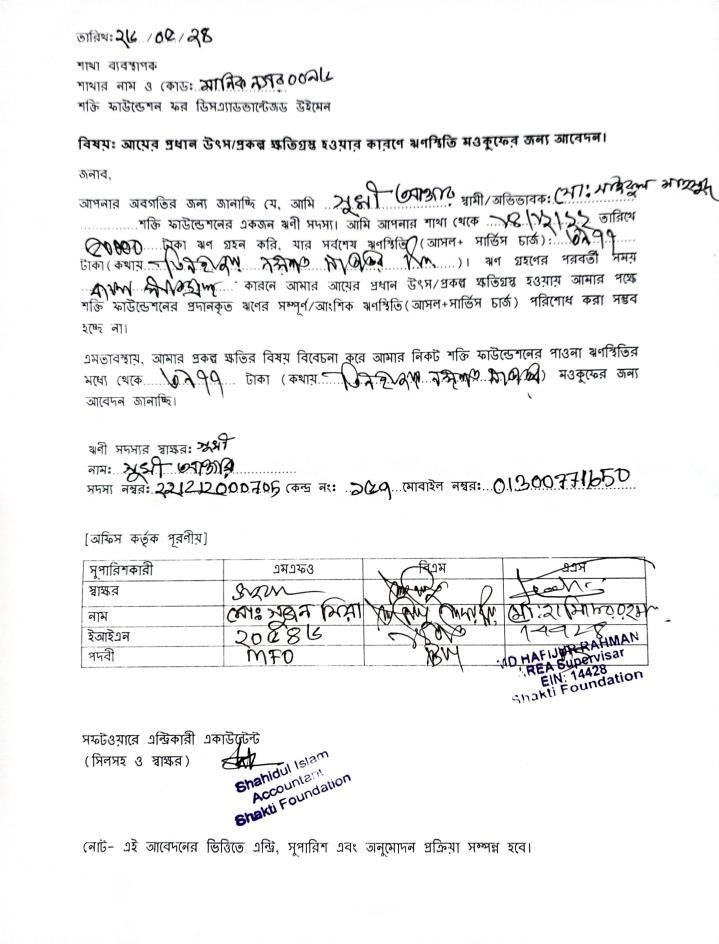 তারিখ: ২৬/০৫/২৪
শাখা ব্যবস্থাপক
শাখার নাম ও কোড: মানিক নগর ০০২৬
শক্তি ফাউন্ডেশন ফর ডিসএ্যাডভান্টেজড উইমেন
বিষয়: আয়ের প্রধান উৎস/প্রকল্প ক্ষতিগ্রস্ত হওয়ার কারণে ঋণস্থিতি মওকুফের জন্য আবেদন।
জনাব,
আপনার অবগতির জন্য জানাচ্ছি যে, আমি সুমী আক্তার স্বামী/অভিভাবক: মো:
শক্তি ফাউন্ডেশনের একজন ঋণী সদস্য। আমি আপনার শাখা থেকে ১৪/১২/২২ তারিখে
টাকা ঋণ গ্রহন করি, যার সর্বশেষ ঋণস্থিতি (আসল+ সার্ভিস চার্জ): ৩৯৭৭
টাকা (কথায় তিনহাজার নয়শত সাতাত্তর)। ঋণ গ্রহণের পরবর্তী সময়
কারনে আমার আয়ের প্রধান উৎস/প্রকল্প ক্ষতিগ্রস্ত হওয়ায় আমার পক্ষে
শক্তি ফাউন্ডেশনের প্রদানকৃত ঋণের সম্পূর্ণ/আংশিক ঋণস্থিতি (আসল+সার্ভিস চার্জ) পরিশোধ করা সম্ভব
হচ্ছে না।
এমতাবস্থায়, আমার প্রকল্প ক্ষতির বিষয় বিবেচনা করে আমার নিকট শক্তি ফাউন্ডেশনের পাওনা ঋণস্থিতির
মধ্যে থেকে ৩৯৭৭ টাকা (কথায় তিনহাজার নয়শত সাতাত্তর) মওকুফের জন্য
আবেদন জানাচ্ছি।
ঋণী সদস্যর স্বাক্ষর: সুমী
নাম: সুমী আক্তার
সদস্য নম্বর: 221212000705 কেন্দ্র নং: ১৫৭ মোবাইল নম্বর: 01300771650
[অফিস কর্তৃক পূরণীয়]
সুপারিশকারী এমএফও বিএম এএস
স্বাক্ষর
নাম মোঃ সুজন মিয়া মো: হাফিজুর রহমান
ইআইএন ২০৫৪৬ ১৪৪২৮
পদবী MFO BM
MD HAFIJUR RAHMAN
AREA Supervisar
EIN: 14428
Shakti Foundation
সফটওয়ারে এন্ট্রিকারী একাউন্টেন্ট
(সিলসহ ও স্বাক্ষর)
Shahidul Islam
Accountant
Shakti Foundation
(নোট- এই আবেদনের ভিত্তিতে এন্ট্রি, সুপারিশ এবং অনুমোদন প্রক্রিয়া সম্পন্ন হবে।